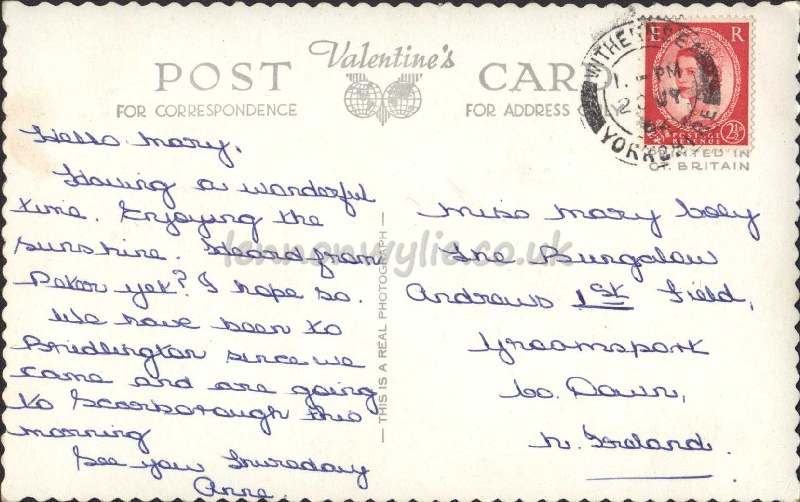 Valentine's
POST CARD
FOR CORRESPONDENCE
FOR ADDRESS
Hello Mary,
Having a wonderful
time. Enjoying the
sunshine. Heard from
Peter yet? I hope so.
We have been to
Bridlington since we
came and are going
to Scarborough this
morning
See you Thursday
Anne.
— THIS IS A REAL PHOTOGRAPH —
E R
POSTAGE
REVENUE
2½
WITHERNSEA
1 - PM
YORKSHIRE
PRINTED IN
GT. BRITAIN
Miss Mary Coey
The Bungalow
Andrews 1st Field,
Groomsport
Co. Down,
N. Ireland.
lennonwylie.co.uk